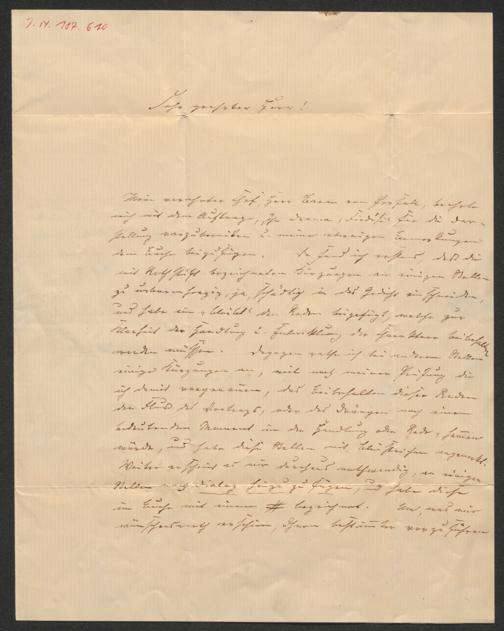 J. N. 107.610
Sehr geehrter Herr!
Mein verehrter Chef, Herr Baron von
mich mit dem Auftrage, Ihr Drama, für die Dar-
stellung vorzubereiten u. meine etwaigen Bemerkungen
dem Buche beizufügen. So fand ich erstens, daß die
mit Rothstift bezeichneten Kürzungen an einigen Stellen
zu unbarmherzig, ja schädlich in das Gedicht einschneiden,
und habe ein "bleibt" den Reden beigefügt, welche zur
Klarheit der Handlung u. Entwicklung der Charaktere beibehalten
werden müssen. Dagegen rathe ich bei anderen Stellen
einige Kürzungen an, weil nach meiner die
ich damit das Beibehalten dieser Reden
den Fluß des Vortrags, oder das Drängen nach einem
bedeutenden Moment in der Handlung oder Rede, hemmen
würde, und habe diese Stellen mit Bleistrichen angemerkt.
Weiter erscheint es mir durchaus nothwendig, an einigen
Stellen hinzuzufügen, und habe diese
im Buche mit einem # bezeichnet. Um, was mir
wünschenswerth erschien, Ihnen bestimmter vorzuführen